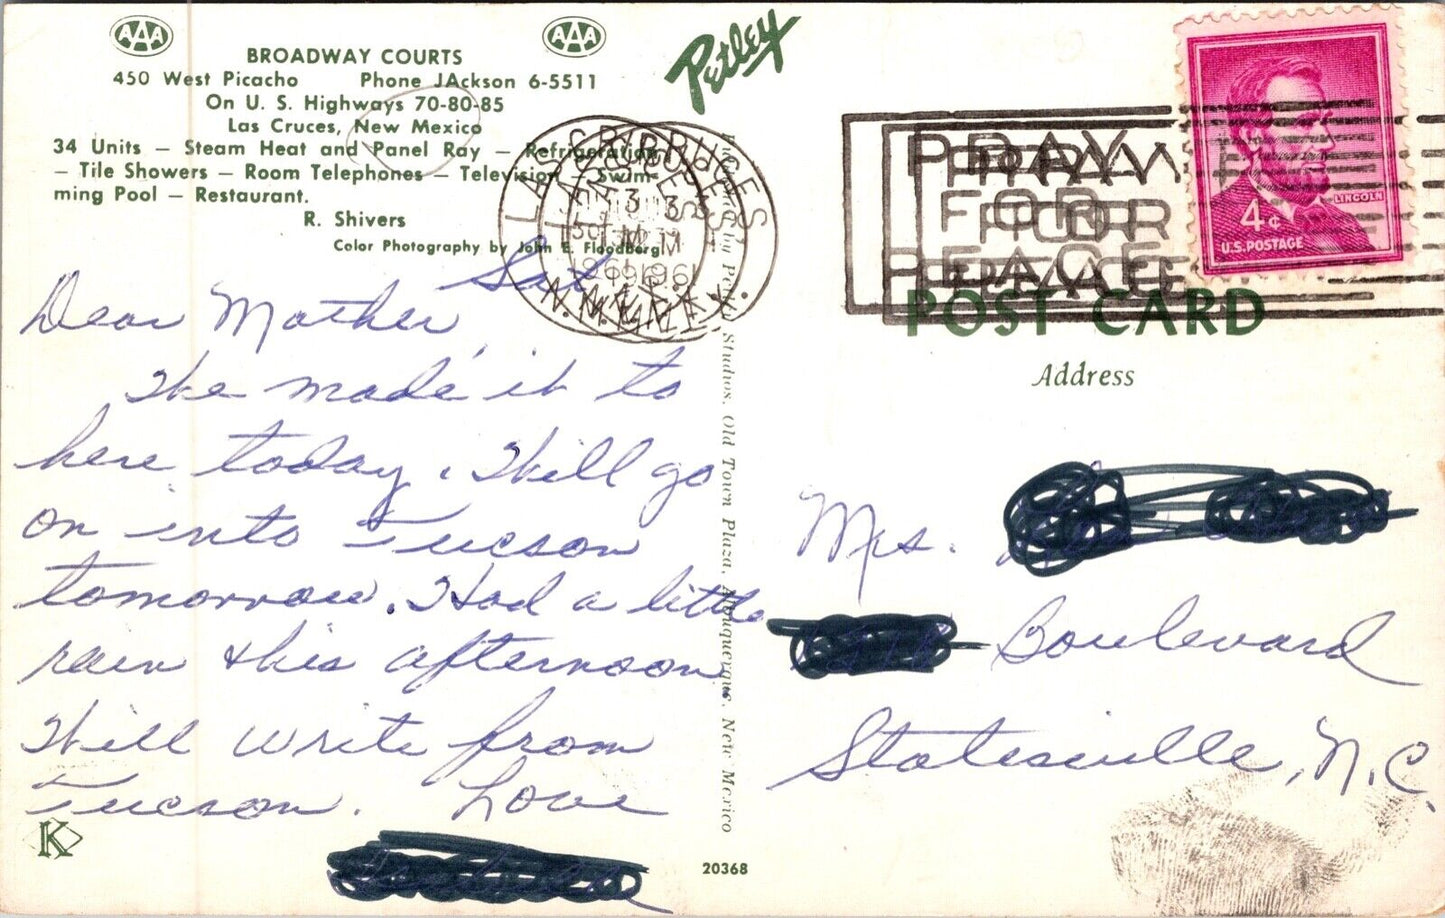 AAA AAA
BROADWAY COURTS
450 West Picacho Phone JAckson 6-5511
On U. S. Highways 70-80-85
Las Cruces, New Mexico
34 Units — Steam Heat and Panel Ray — Refrigeration
— Tile Showers — Room Telephones — Television — Swim-
ming Pool — Restaurant.
R. Shivers
Color Photography by John E. Floodberg
Petley
LAS CRUCES
1961
N. MEX.
PRAY
FOR
PEACE
4¢
LINCOLN
U.S. POSTAGE
POST CARD
Address
Sat
Dear Mother,
We made it to
here today. Will go
on into Tucson
tomorrow. Had a little
rain this afternoon.
Will write from
Tucson. Love
K
by Petley Studios, Old Town Plaza, Albuquerque, New Mexico
20368
Mrs.
Boulevard
Statesville, N.C.